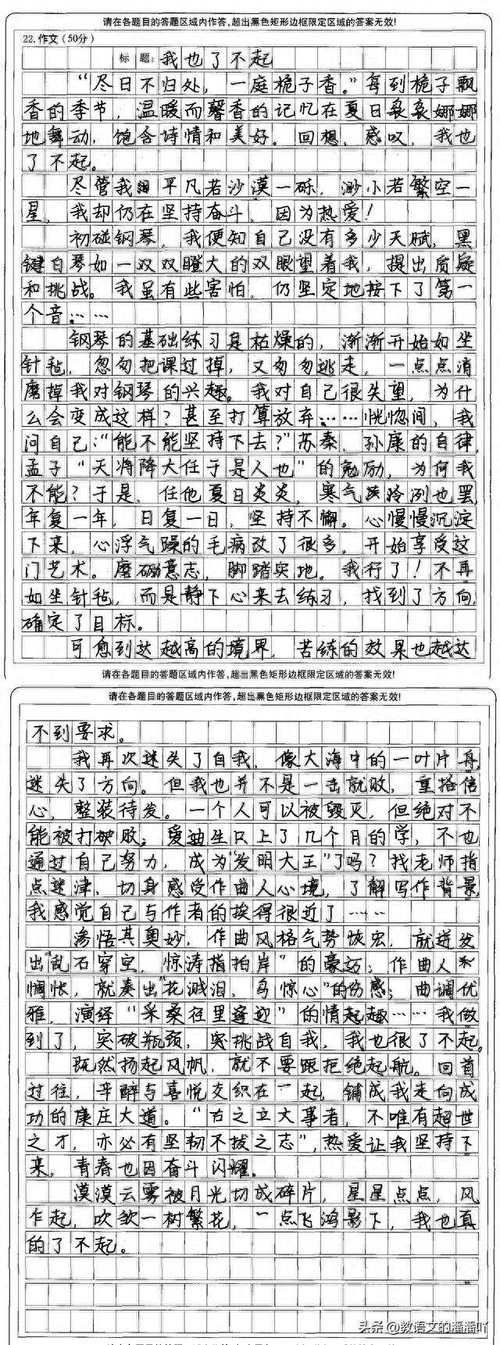 请在各题目的答题区域内作答,超出黑色矩形边框限定区域的答案无效!
22.作文(50分)
标题:我也了不起
“尽日不归处,一庭栀子香。”每到栀子飘
香的季节,温暖而馨香的记忆在夏日袅袅娜娜
地舞动,饱含诗情和美好。回想,感叹,我也
了不起。
尽管我平凡若沙漠一砾,渺小若繁空一
星,我却仍在坚持奋斗,因为热爱!
初碰钢琴,我便知自己没有多少天赋,黑
键白琴如一双双瞪大的双眼望着我,提出质疑
和挑战。我虽有些害怕,仍坚定地按下了第一
个音……
钢琴的基础练习是枯燥的,渐渐开始如坐
针毡,忽匆把课过掉,又匆匆逃走,一点点消
磨掉我对钢琴的兴趣。我对自己很失望,为什
么会变成这样?甚至打算放弃……恍惚间,我
问自己:“能不能坚持下去?”苏秦、孙康的自律,
孟子“天将降大任于是人也”的勉励,为何我
不能?于是,任他夏日炎炎,寒气冷冽也罢,
年复一年,日复一日,坚持不懈。心慢慢沉淀
下来,心浮气躁的毛病改了很多,开始享受这
门艺术。磨砺意志,脚踏实地。我行了!不再
如坐针毡,而是静下心来去练习,找到了方向,
确定了目标。
可愈到达越高的境界,苦练的效果也越达
请在各题目的答题区域内作答,超出黑色矩形边框限定区域的答案无效!
请在各题目的答题区域内作答,超出黑色矩形边框限定区域的答案无效!
不到要求。
我再次迷失了自我,像大海中的一叶片舟,
迷失了方向。但我也并不是一击就败,重拾信
心,整装待发。一个人可以被毁灭,但绝对不
能被打败;爱迪生只上了几个月的学,不也
通过自己努力,成为“发明大王”了吗?找老师指
点迷津,切身感受作曲人心境,了解写作背景,
我感觉自己与作者的挨得很近了……
渗悟其奥妙,作曲风格气势恢宏,就迸发
出“乱石穿空,惊涛拍岸”的豪迈;作曲人
惆怅,就奏出“花溅泪,鸟惊心”的伤感;曲调优
雅,演绎“采桑径里逢迎”的情趣……我做
到了,突破瓶颈,挑战自我,我也很了不起。
既然扬起风帆,就不要跟拒绝起航。回首
过往,辛酸与喜悦交织在一起,铺成我走向成
功的康庄大道。“古之立大事者,不唯有超世
之才,亦必有坚韧不拔之志”,热爱让我坚持下
来,青春也因奋斗闪耀。
漠漠云雾被月光切成碎片,星星点点,风
乍起,吹一树繁花,一点飞鸿影下,我也真
的了不起。
头条@教语文的潘潘吖